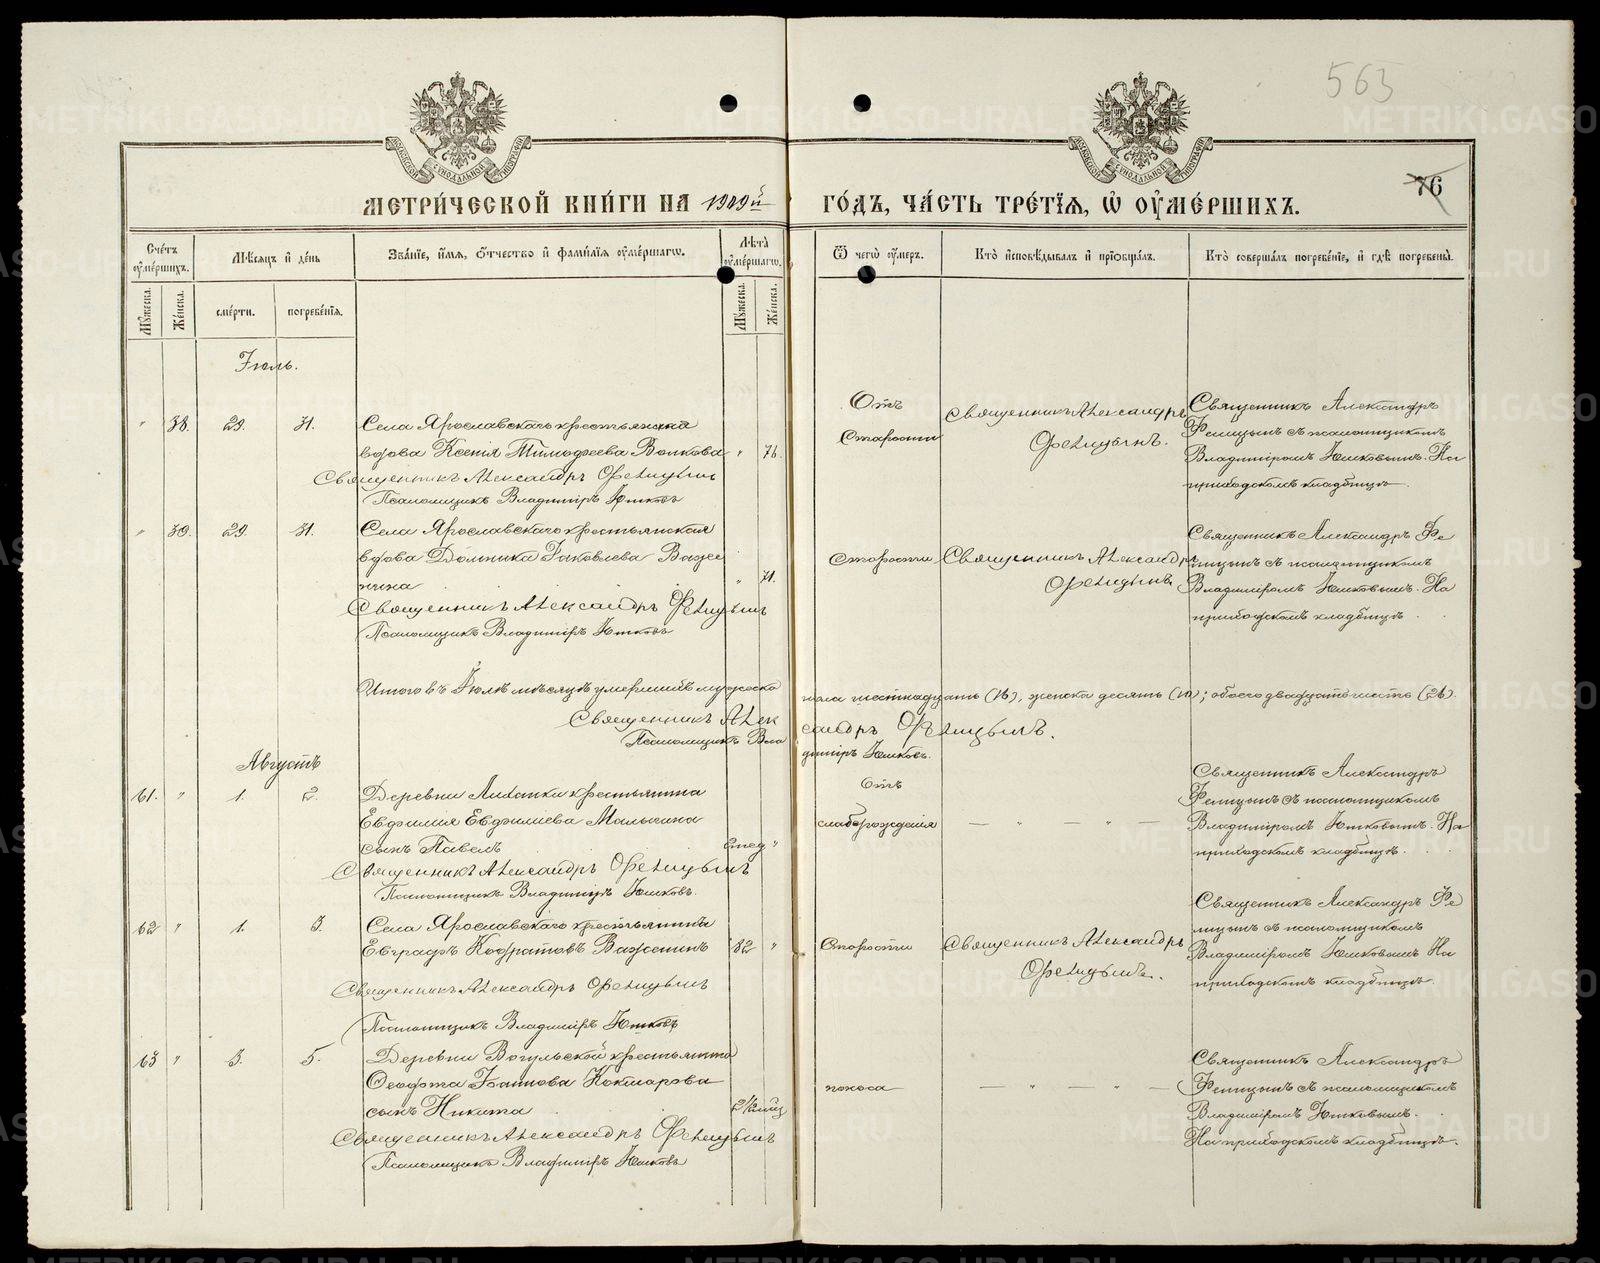 563
76
МЕТРИ́ЧЕСКОЙ КНИ́ГИ НА 1909й ГО́ДЪ, ЧА́СТЬ ТРЕ́ТІЯ, Ѿ ОУМЕ́РШИХЪ.
Сче́тъ оуме́ршихъ.
Мѣ́сяцъ и де́нь
Зва́ніе, и́мя, о́тчество и фами́лія оуме́ршагѡ.
Лѣ́та оуме́ршагѡ.
Ѿ чегѡ̀ оу́меръ.
Кто̀ исповѣ́дывалъ и пріѻбща́лъ.
Кто̀ соверша́лъ погребе́ніе, и гдѣ̀ погребены̀.
Му́жеска.
Же́нска.
сме́рти.
погребе́нія.
Му́жеска.
Же́нска.
Іюль.
" 38. 29. 31.
Села Ярославскаго крестьянская
вдова Ксенія Тимофеева Волкова " 76.
Священникъ Александръ Фелицынъ
Псаломщикъ Владиміръ Юшковъ
Отъ
старости
Священникъ Александръ
Фелицынъ.
Священникъ Александръ
Фелицынъ съ псаломщикомъ
Владиміромъ Юшковымъ. На
приходскомъ кладбищѣ.
" 39. 29. 31.
Села Ярославскаго крестьянская
вдова Домника Іаковлева Важе
нина " 71.
Священникъ Александръ Фелицынъ
Псаломщикъ Владиміръ Юшковъ
Старости
Священникъ Александръ
Фелицынъ
Священникъ Александръ Фе
лицынъ съ псаломщикомъ
Владиміромъ Юшковымъ. На
приходскомъ кладбищѣ.
Итого въ Іюлѣ мѣсяцѣ умершихъ мужеска пола шестнадцать (16), женска десять (10); обоего двадцать шесть (26).
Священникъ Александръ Фелицынъ.
Псаломщикъ Владиміръ Юшковъ.
Августъ
61. " 1. 2.
Деревни крестьянина
Евфимія Евфиміева Малыгина
сынъ Павелъ "
Священникъ Александръ Фелицынъ
Псаломщикъ Владиміръ Юшковъ.
Отъ
слаборожденія
— " — " —
Священникъ Александръ
Фелицынъ съ псаломщикомъ
Владиміромъ Юшковымъ. На
приходскомъ кладбищѣ.
62 " 1. 3.
Села Ярославскаго крестьянинъ
Евграфъ Кодратовъ Важенинъ 82 "
Священникъ Александръ Фелицынъ
Псаломщикъ Владиміръ Юшковъ
Старости
Священникъ Александръ
Фелицынъ.
Священникъ Александръ Фе
лицынъ съ псаломщикомъ
Владиміромъ Юшковымъ На
приходскомъ кладбищѣ.
63 " 3. 5.
Деревни Вогульской крестьянина
Іоаннова Кокшарова
сынъ Никита 2½ мѣс
Священникъ Александръ Фелицынъ
Псаломщикъ Владиміръ Юшковъ
поноса
— " — " —
Священникъ Александръ
Фелицынъ съ псаломщикомъ
Владиміромъ Юшковымъ.
На приходскомъ кладбищѣ.
METRIKI.GASO-URAL.RU